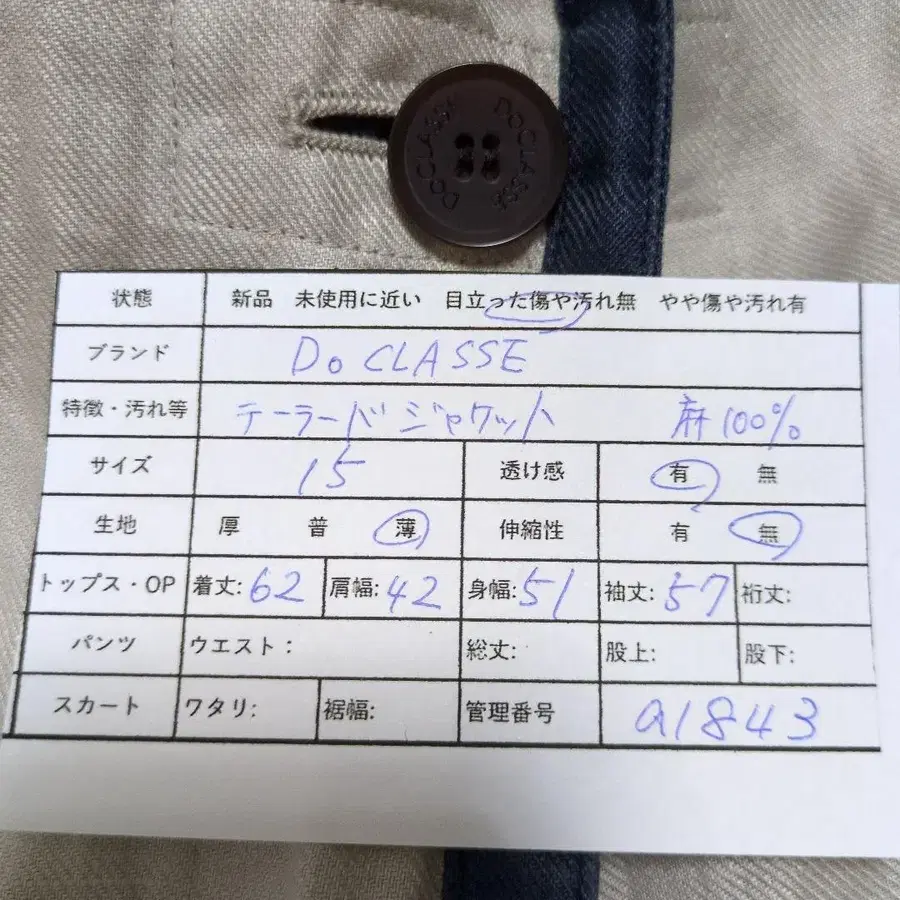 DOCLASSE DOCLASSE
状態 新品 未使用に近い 目立った傷や汚れ無 やや傷や汚れ有
ブランド Do CLASSE
特徴・汚れ等 テーラードジャケット 麻100%
サイズ 15 透け感 有 無
生地 厚 普 薄 伸縮性 有 無
トップス・OP 着丈: 62 肩幅: 42 身幅: 51 袖丈: 57 裄丈:
パンツ ウエスト: 総丈: 股上: 股下:
スカート ワタリ: 裾幅: 管理番号 a1843